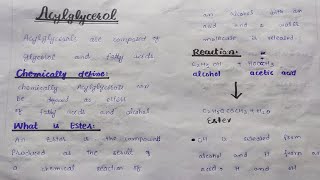 Acylglycerol
Acylglycerols are composed of
glycerol and fatty acids
Chemically define:
chemically Acylglycerols can
be defined as esters
of fatty acids and alcohol
What is Ester:
An Ester is the compound
produced as the result of
a chemical reaction of
an alcohol with an
acid and a water
molecule is released
Reaction:
C2H5OH + HOOCCH3
alcohol acetic acid
↓
C2H5OCOCH3 + H2O
Ester
OH is released from
alcohol and H from an
acid. H and OH